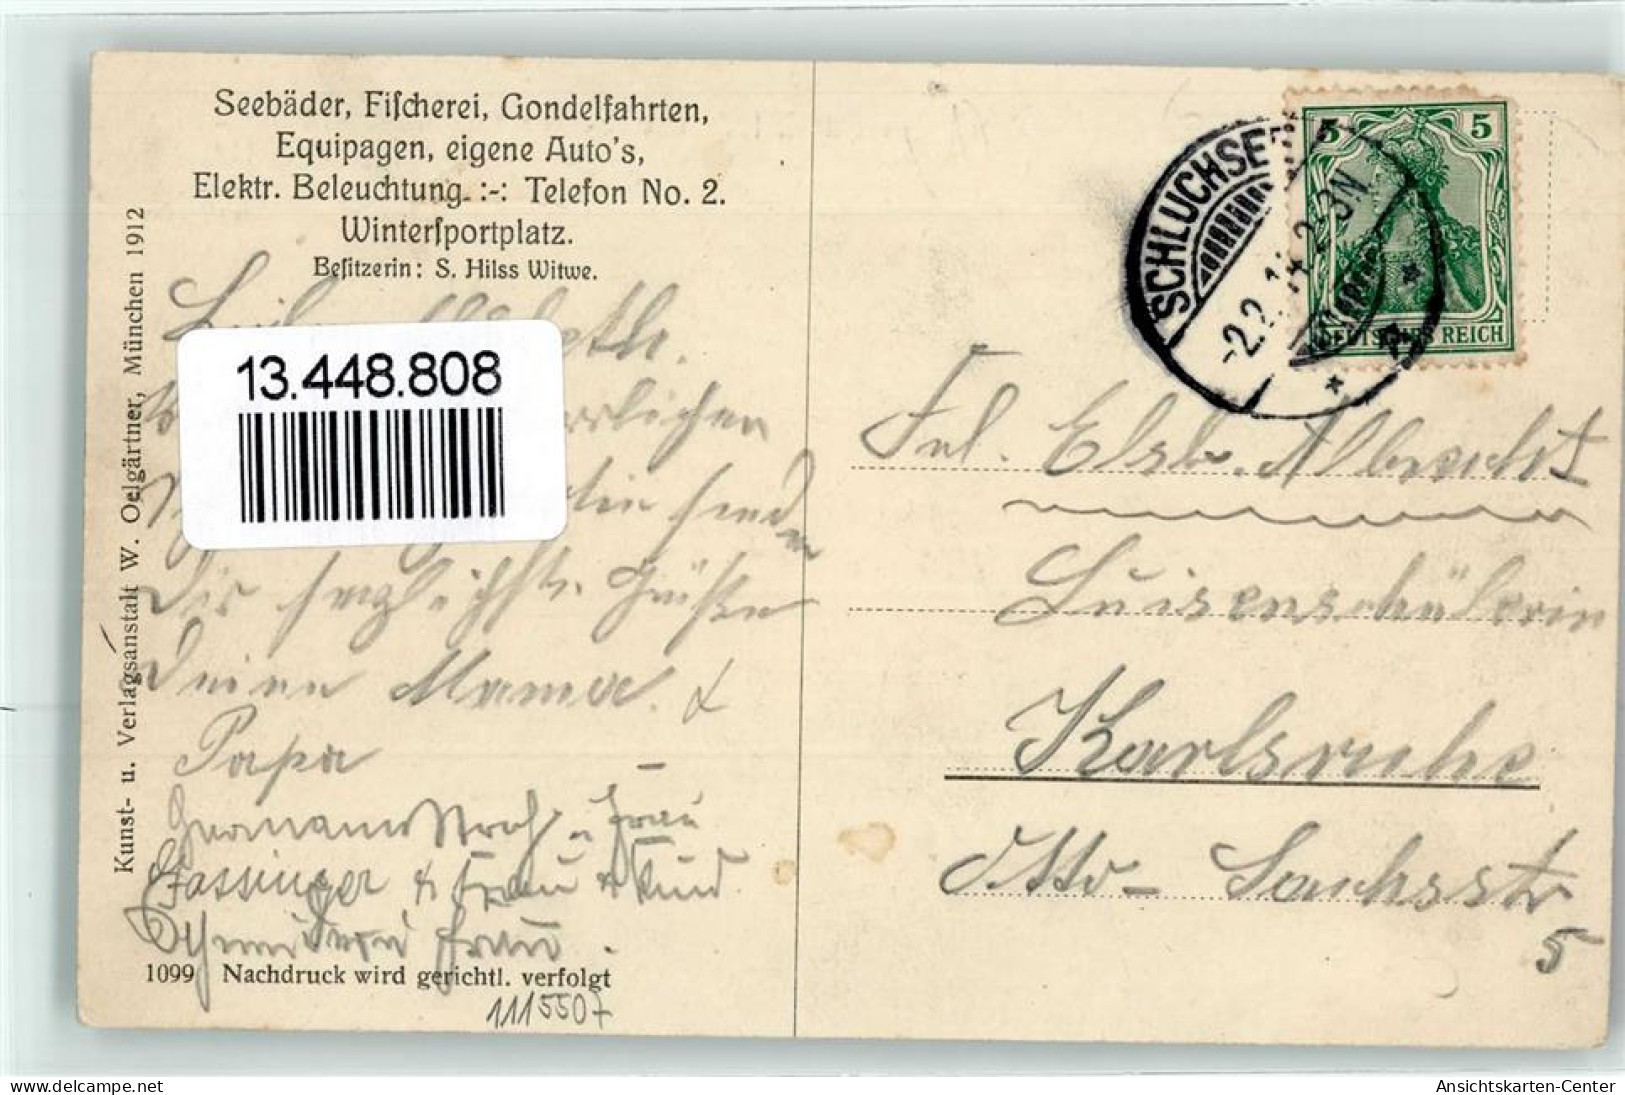 Seebäder, Fischerei, Gondelfahrten,
Equipagen, eigene Auto's,
Elektr. Beleuchtung. :-: Telefon No. 2.
Wintersportplatz.
Besitzerin: S. Hilss Witwe.
Kunst- u. Verlagsanstalt W. Oelgärtner, München 1912
13.448.808
herrlichen
senden
Dir herzlichste Grüße
Deine Mama &
Papa
u. Frau
& Frau & Kind
Frau
1099 Nachdruck wird gerichtl. verfolgt
1115507
SCHLUCHSEE
-2.2.14. 2-3N
5 5
DEUTSCHES REICH
Frl. Elsb. Albrecht
Luisenschülerin
Karlsruhe
Otto-Sachsstr
5
oldthing.de
Ansichtskarten-Center